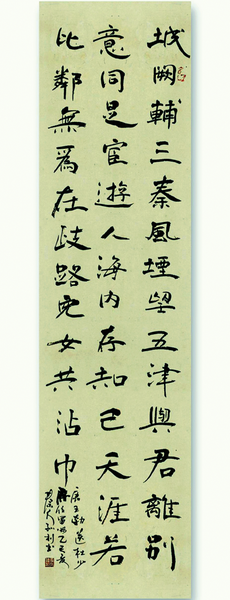 城闕輔三秦風煙望五津與君離別
意同是宦遊人海内存知己天涯若
比鄰無爲在歧路兒女共沾巾
唐王勃送杜少
府任蜀州乙亥
利書